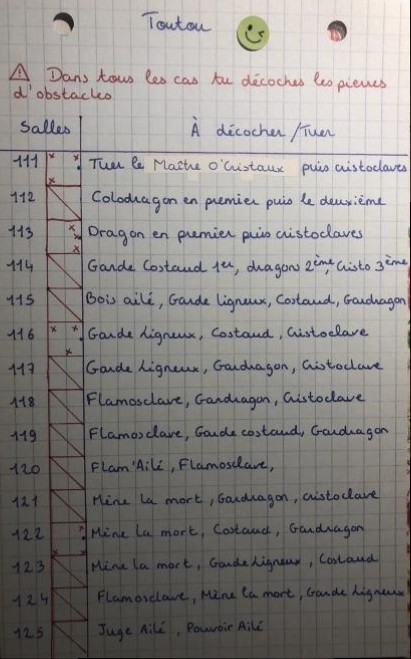 Toutou
⚠ Dans tous les cas tu décoches les pierres
d'obstacles
Salles À décocher/Tuer
111 Tuer le Maître O'Cristaux puis cristoclaves
112 Colodragon en premier puis le deuxième
113 Dragon en premier puis cristoclaves
114 Garde Costaud 1er, dragon 2ème, Cristo 3ème
115 Bois ailé, Garde ligneux, Costaud, Gardragon
116 Garde Ligneux, Costaud, Cristoclave
117 Garde Ligneux, Gardragon, Cristoclave
118 Flamosclave, Gardragon, Cristoclave
119 Flamosclave, Garde costaud, Gardragon
120 Flam'Ailé, Flamosclave,
121 Mène la mort, Gardragon, cristoclave
122 Mène la mort, Costaud, Gardragon
123 Mène la mort, Garde Ligneux, Costaud
124 Flamosclave, Mène la mort, Garde Ligneux
125 Juge Ailé, Pouvoir Ailé